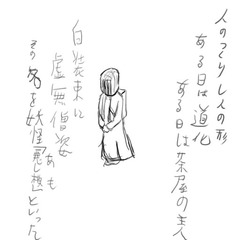 人のつくりし人の形
ある日は道化
ある日は茶屋の主人
白装束に
虚無僧姿
あも
その名を妖怪悪し想といった